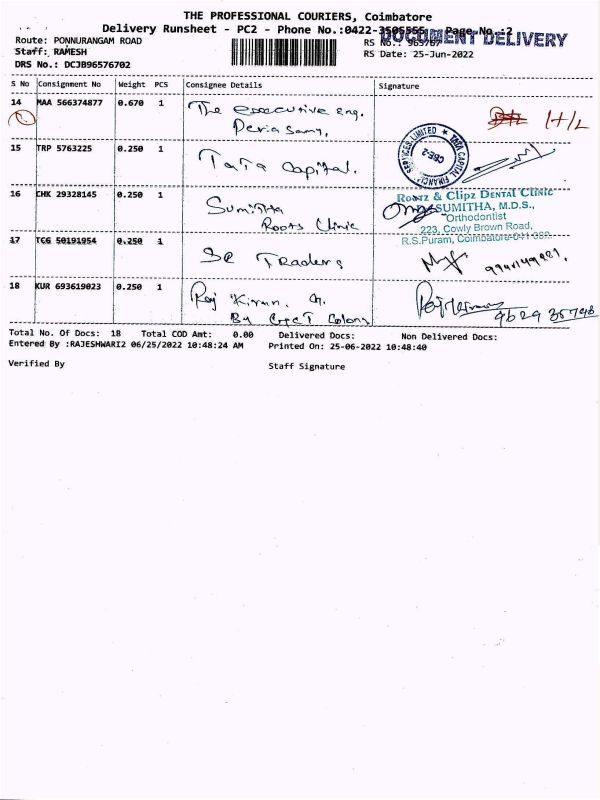 THE PROFESSIONAL COURIERS, Coimbatore
Delivery Runsheet - PC2 - Phone No.:0422-3505555 Page No.:2
DOCUMENT DELIVERY
Route: PONNURANGAM ROAD
RS No.: 965767
Staff: RAMESH
RS Date: 25-Jun-2022
DRS No.: DCJB96576702
S No Consignment No Weight PCS Consignee Details Signature
14 MAA 566374877 0.670 1 The executive eng. H/L
Peria Samy,
15 TRP 5763225 0.250 1 TaTa Capital.
SERVICES LIMITED ★ TATA CAPITAL FINANCIAL
CBE-2
16 CHK 29328145 0.250 1 Sumitha
Roots Clinic
Rootz & Clipz DENTAL CLINIC
SUMITHA, M.D.S.,
Orthodontist
223, Cowly Brown Road,
R.S.Puram, Coimbatore-641 002
17 TCG 50191954 0.250 1 SR Traders
18 KUR 693619023 0.250 1 Raj Kiran. M.
By GCT Colony
Total No. Of Docs: 18 Total COD Amt: 0.00 Delivered Docs: Non Delivered Docs:
Entered By :RAJESHWARI2 06/25/2022 10:48:24 AM Printed On: 25-06-2022 10:48:40
Verified By Staff Signature